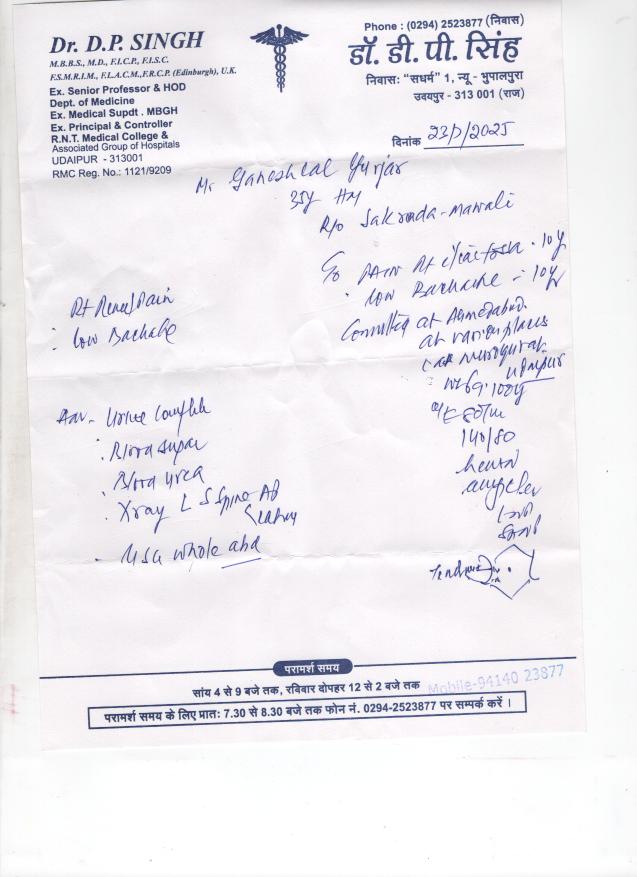 Dr. D.P. SINGH
M.B.B.S., M.D., F.I.C.P., F.I.S.C.
F.S.M.R.I.M., F.I.A.C.M., F.R.C.P. (Edinburgh), U.K.
Ex. Senior Professor & HOD
Dept. of Medicine
Ex. Medical Supdt . MBGH
Ex. Principal & Controller
R.N.T. Medical College &
Associated Group of Hospitals
UDAIPUR - 313001
RMC Reg. No.: 1121/9209
Phone : (0294) 2523877 (निवास)
डॉ. डी. पी. सिंह
निवासः "सधर्म" 1, न्यू - भुपालपुरा
उदयपुर - 313 001 (राज)
दिनांक 23/7/2025
Mr Ganeshlal Gurjar
35y
R/o Sakroda-mawali
C/o PAIN Rt 10y
Low Backache - 10y
Consulted at Ahmedabad
at various places
Udaipur
140/80
Rt Renal Pain
Low Backache
Adv- Urine Complete
Blood Sugar
Blood Urea
Xray L S Spine AP
Lateral
USG whole abd
परामर्श समय
सांय 4 से 9 बजे तक, रविवार दोपहर 12 से 2 बजे तक
Mobile-94140 23877
परामर्श समय के लिए प्रातः 7.30 से 8.30 बजे तक फोन नं. 0294-2523877 पर सम्पर्क करें ।